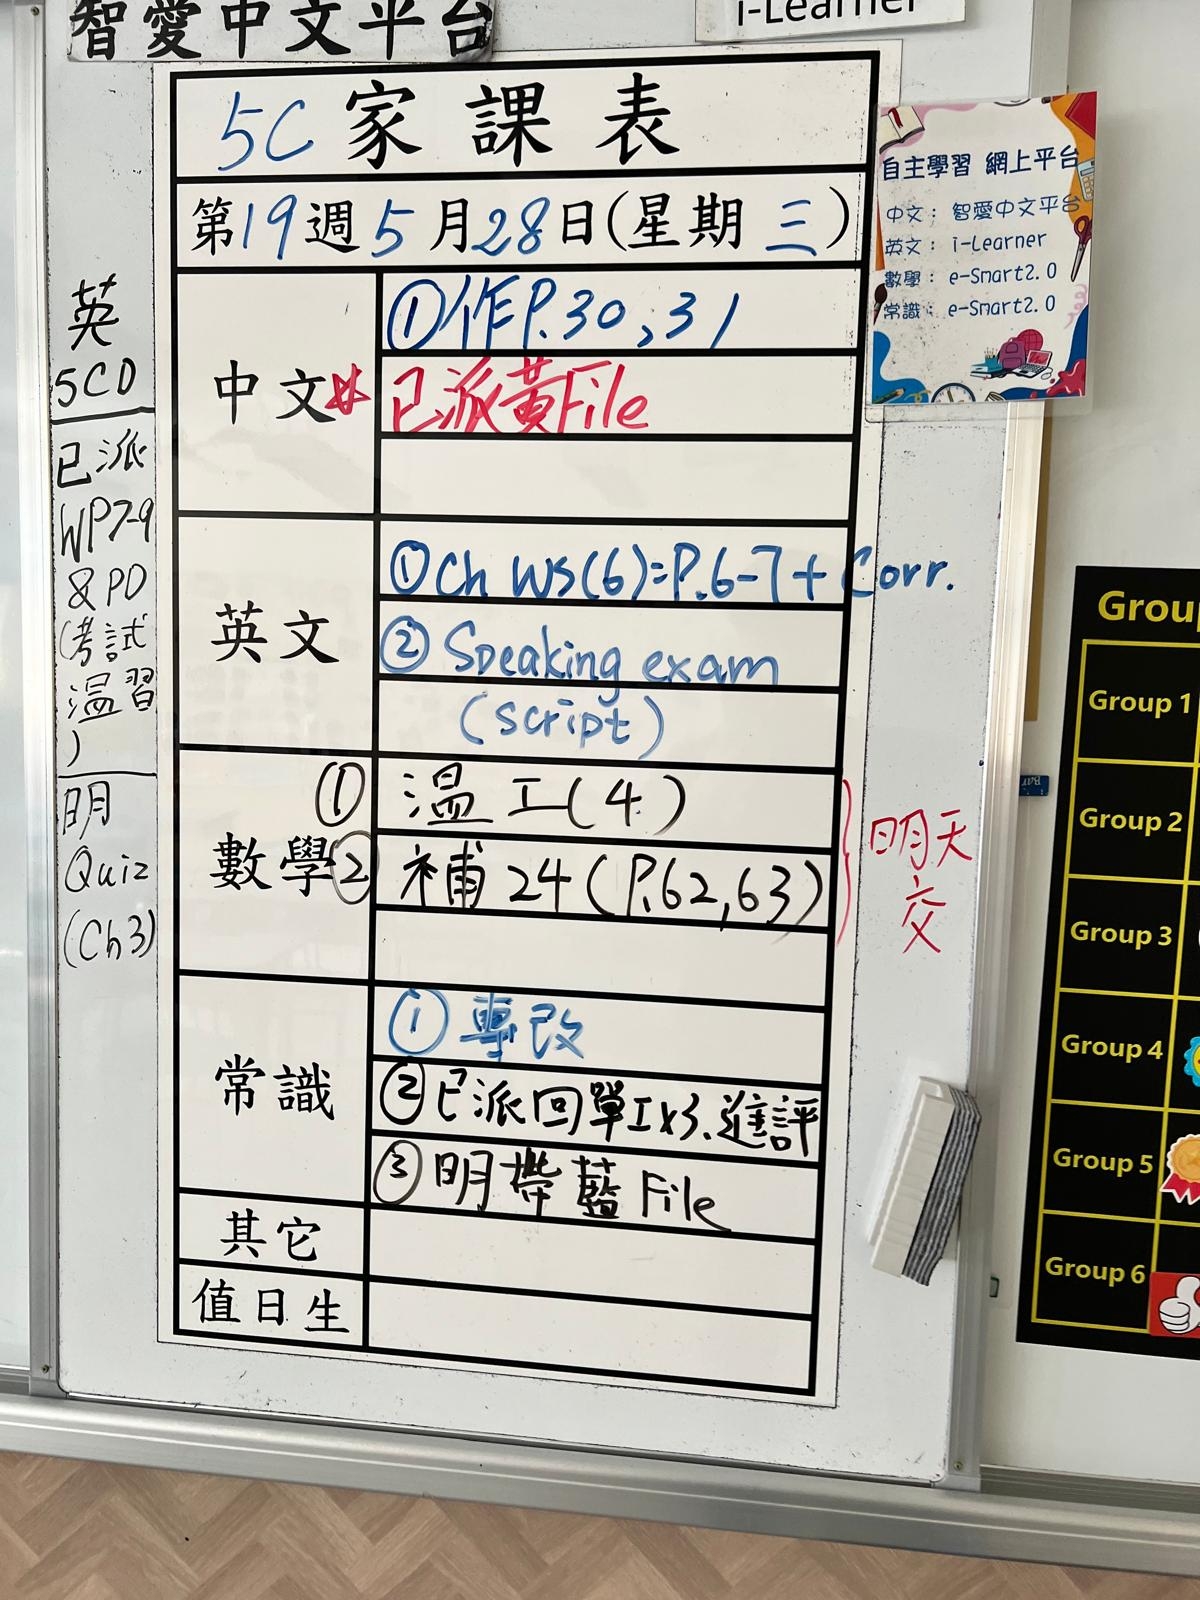 智愛中文平台
i-Learner
5C 家課表
第19週5月28日(星期三)
中文
①作P.30,31
已派黃File
英文
①Ch WS(6)=P.6-7+Corr.
②Speaking exam
(script)
數學
①溫工(4)
②補24(P.62,63)
明天
交
常識
①專改
②已派回單工x3、進評
③明帶藍File
其它
值日生
英
5CD
已派
WP7-9
&PD
(考試
溫習
)
明
Quiz
(Ch3)
自主學習 網上平台
中文: 智愛中文平台
英文: i-Learner
數學: e-Smart2.0
常識: e-Smart2.0
Grou
Group 1
Group 2
Group 3
Group 4
Group 5
Group 6